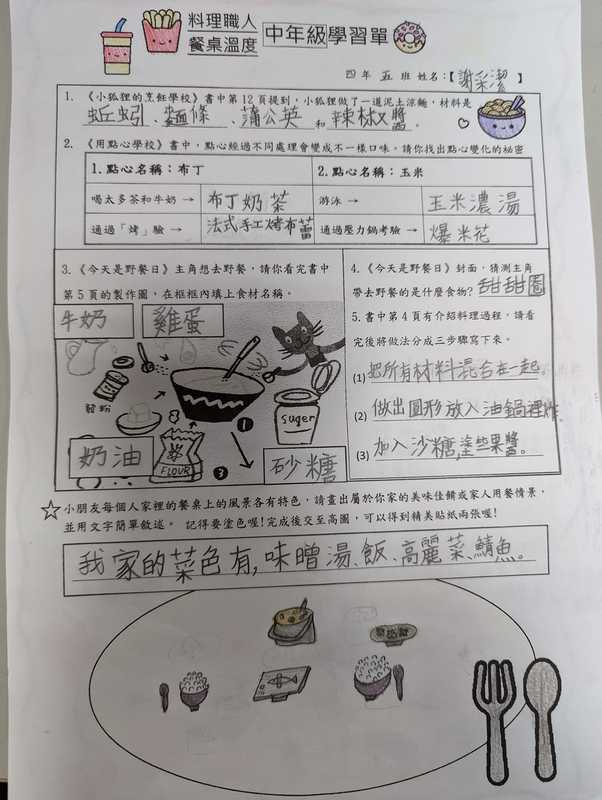 料理職人
餐桌溫度 中年級學習單
四年 五 班 姓名:【謝采潔】
1. 《小狐狸的烹飪學校》書中第12頁提到,小狐狸做了一道泥土涼麵,材料是
蚯蚓、麵條、蒲公英 和 辣椒醬。
2. 《用點心學校》書中,點心經過不同處理會變成不一樣口味。請你找出點心變化的祕密
1.點心名稱:布丁 2.點心名稱:玉米
喝太多茶和牛奶→ 布丁奶茶 游泳→ 玉米濃湯
通過「烤」驗→ 法式手工烤布蕾 通過壓力鍋考驗→ 爆米花
3.《今天是野餐日》主角想去野餐,請你看完書中
第5頁的製作圖,在框框內填上食材名稱。
牛奶 雞蛋
發粉
suger
奶油
FLOUR
砂糖
1
3
4.《今天是野餐日》封面,猜測主角
帶去野餐的是什麼食物? 甜甜圈
5.書中第4頁有介紹料理過程,請看
完後將做法分成三步驟寫下來。
(1) 把所有材料混合在一起。
(2) 做出圓形放入油鍋裡炸。
(3) 加入沙糖,塗些果醬。
☆小朋友每個人家裡的餐桌上的風景各有特色,請畫出屬於你家的美味佳餚或家人用餐情景,
並用文字簡單敘述。 記得要塗色喔!完成後交至高圖,可以得到精美貼紙兩張喔!
我家的菜色有,味噌湯、飯、高麗菜、鯖魚。